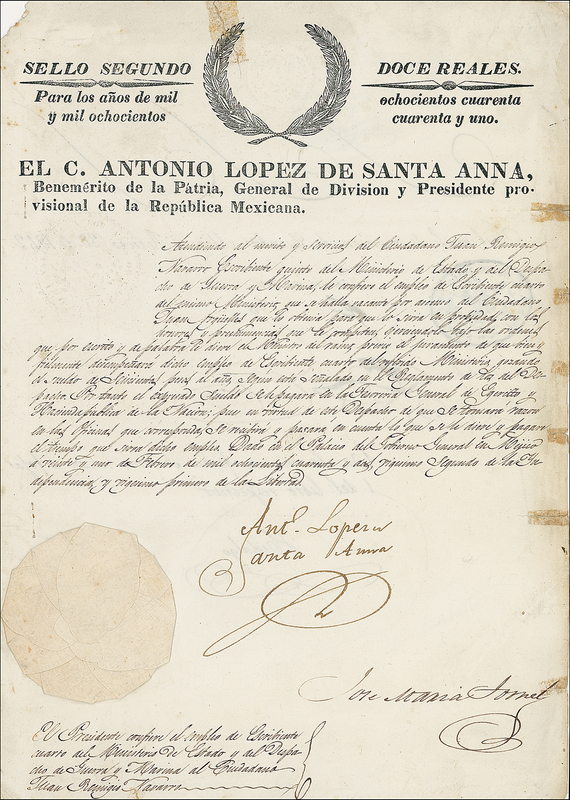 SELLO SEGUNDO
DOCE REALES.
Para los años de mil
ochocientos cuarenta
y mil ochocientos
cuarenta y uno.
EL C. ANTONIO LOPEZ DE SANTA ANNA,
Benemérito de la Pátria, General de Division y Presidente pro-
visional de la República Mexicana.
Atendiendo al merito y servicios del Ciudadano Juan Remigio
Navarro Escribiente quinto del Ministerio de Estado y del Despa-
cho de Guerra y Marina, le confiere el empleo de Escribiente cuarto
del mismo Ministerio, que se halla vacante por acenso del Ciudadano
Juan Arguelles que lo obtenia para que lo sirva en propiedad con los
honores y preeminencias que le bajo las ordenes
que por escrito y de palabra le diere el Ministro del ramo, previo el juramento de que bien y
fielmente desempeñara dicho empleo de Escribiente cuarto del referido Ministerio, gozando
el sueldo de pesos al año, segun esta señalado en el Reglamento de
Por tanto el espresado Sueldo se le pagará en la Tesoreria General de Egercito y
Hacienda publica de la Nacion; pues en virtud de este Despacho de que se tomara razon
en las Oficinas que corresponda, se recibira y pasara en cuenta lo que se le diere y pagare
el tiempo que sirva dicho empleo. Dado en el Palacio del Gobierno General en Mejico
á veinte y uno de Febrero de mil ochocientos cuarenta y dos, vigesimo Segundo de la In-
dependencia, y vigesimo primero de la Libertad.
Ant. Lopez de
Santa Anna
Jose Maria Tornel
El Presidente confiere el empleo de Escribiente
cuarto del Ministerio de Estado y del Despa-
cho de Guerra y Marina al Ciudadano
Juan Remigio Navarro